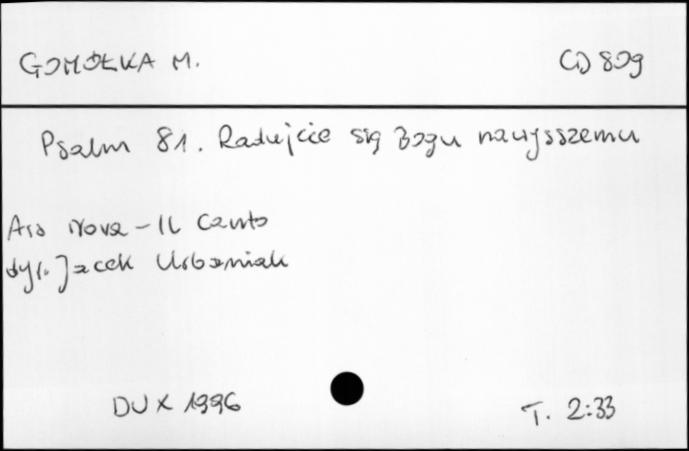 GOMÓŁKA M. CD 809
Psalm 81. Radujcie się Bogu nawysszemu
Ars Nova - Il Canto
dyr. Jacek Urbaniak
DUX 1996 T. 2:33